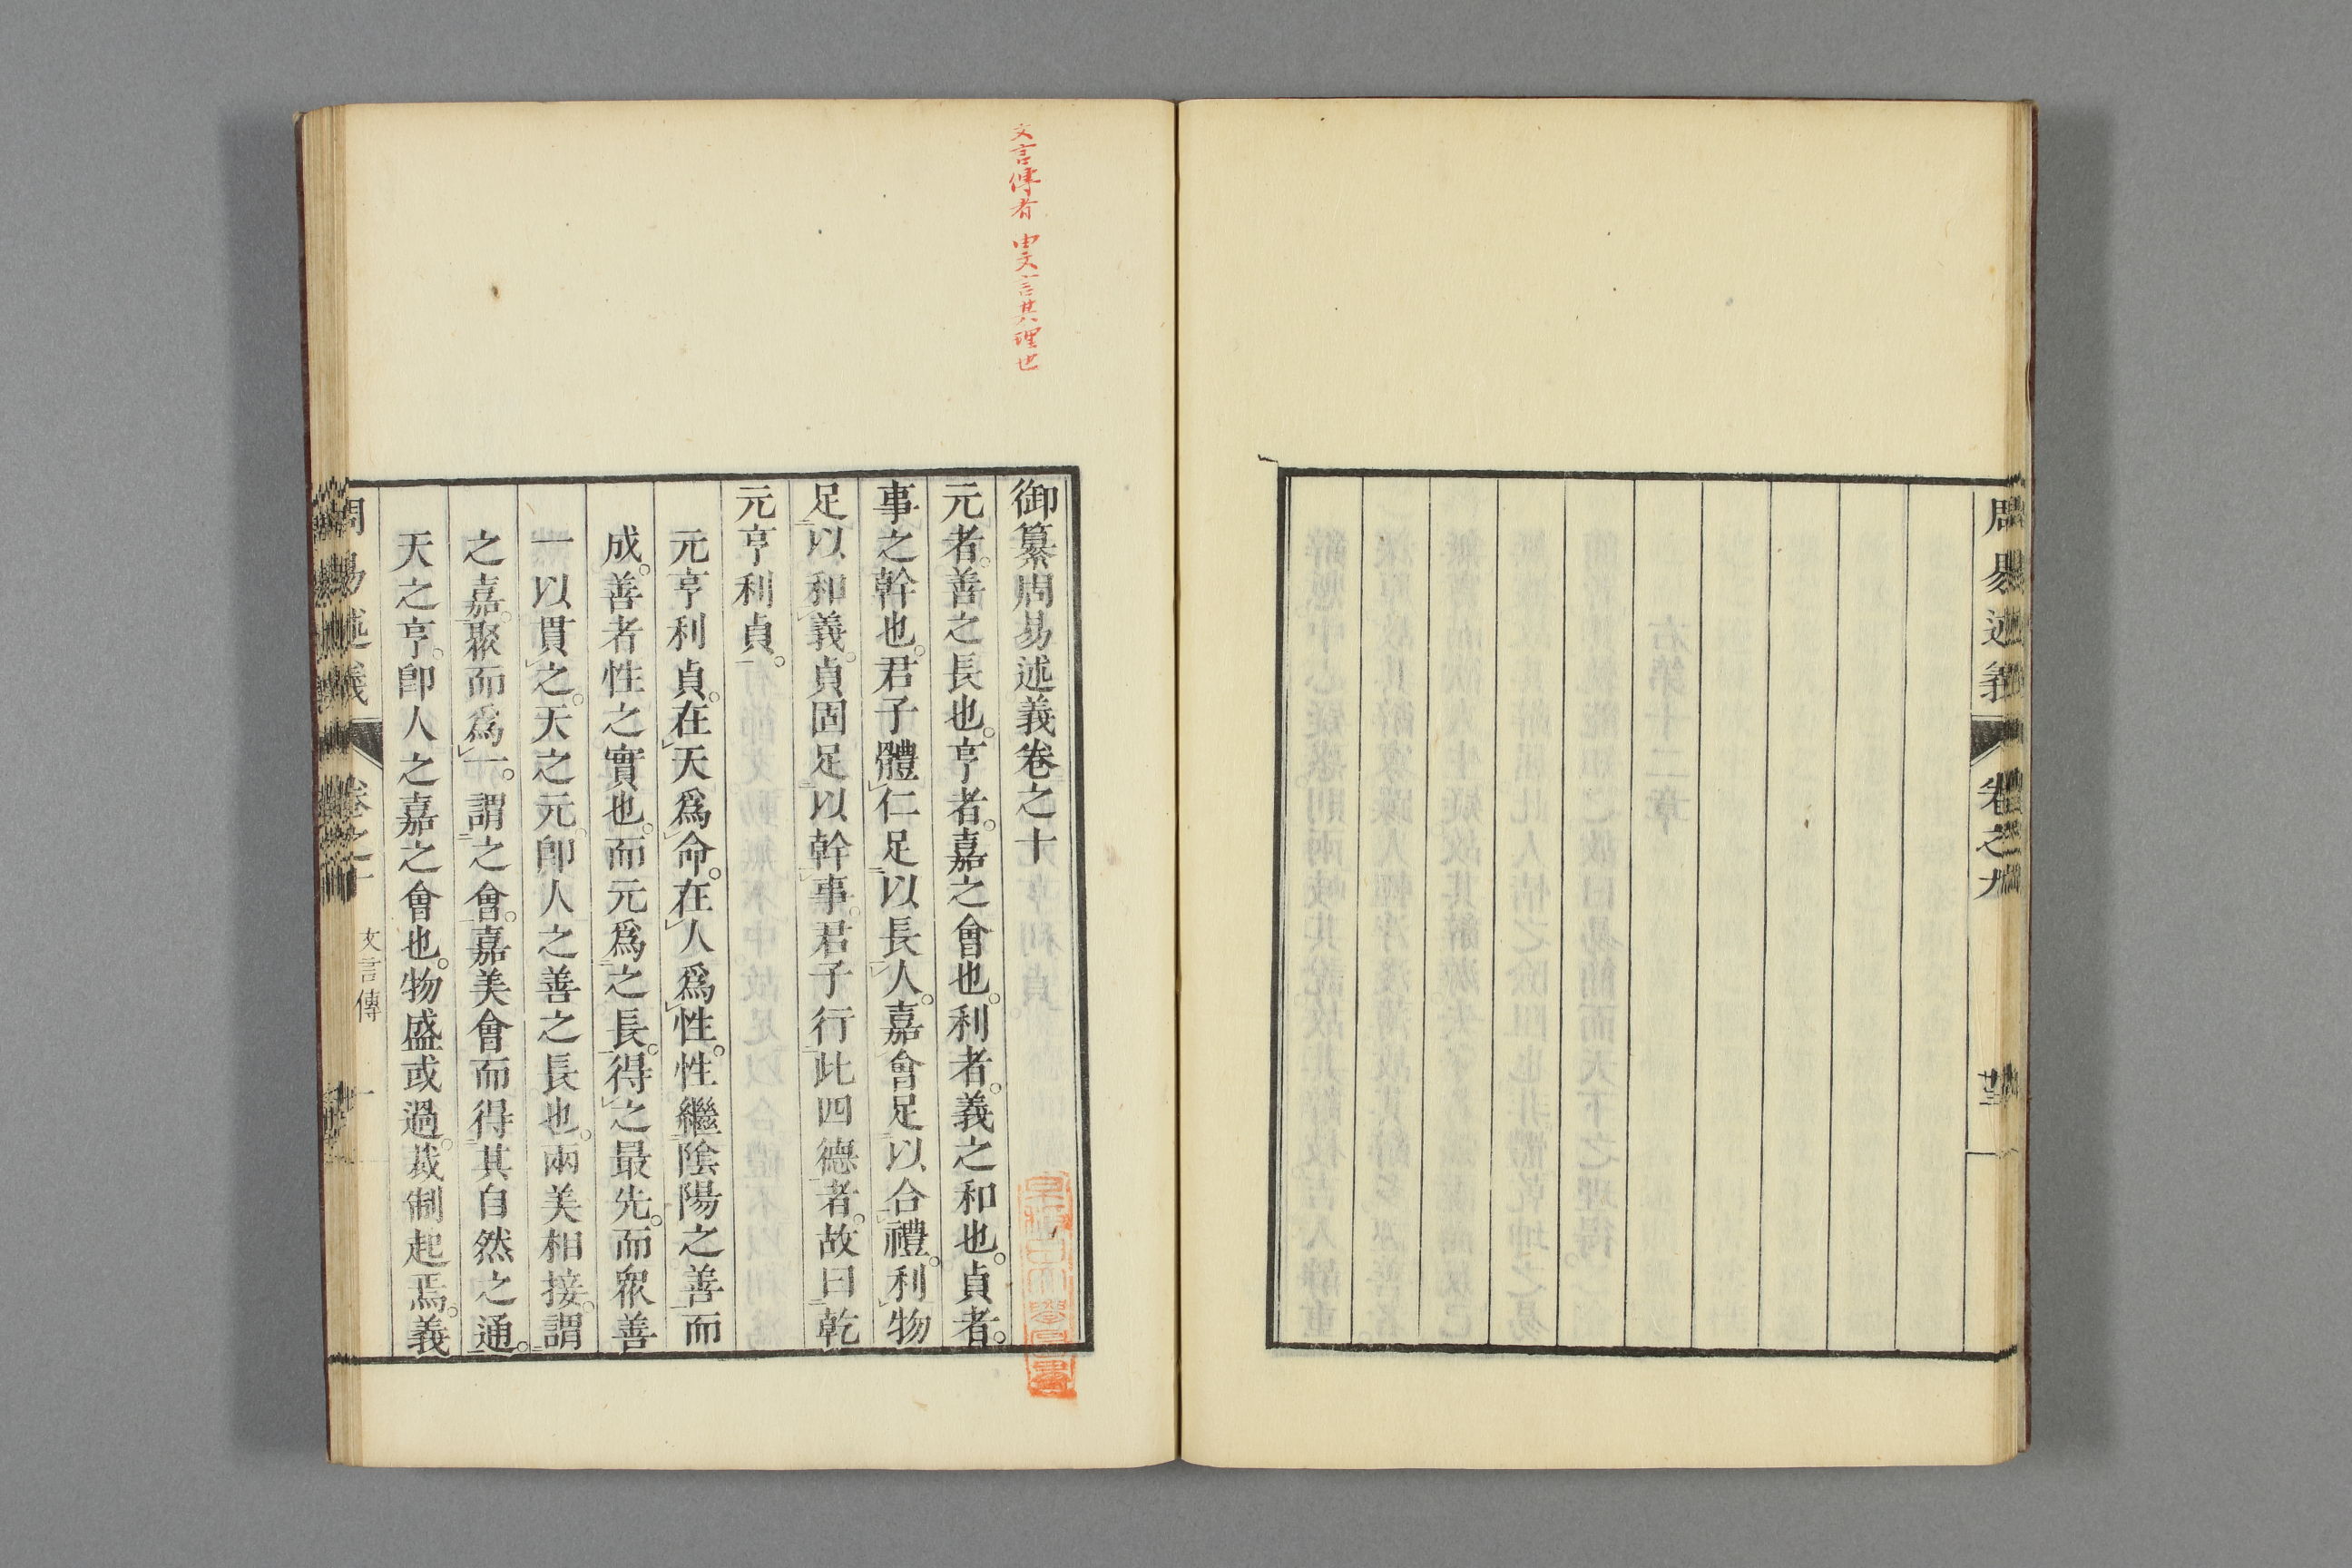 周易述義
卷之九
文言傳者 由文言其理也
御纂周易述義卷之十
元者。善之長也。亨者。嘉之會也。利者。義之和也。貞者。
事之幹也。君子體仁足以長人。嘉會足以合禮。利物
足以和義。貞固足以幹事。君子行此四德者。故曰乾
元亨利貞。
元亨利貞。在天爲命。在人爲性。性繼陰陽之善而
成。善者性之實也。而元爲之長。得之最先。而衆善
一以貫之。天之元。卽人之善之長也。兩美相接。謂
之嘉。聚而爲一。謂之會。嘉美會而得其自然之通。
天之亨。卽人之嘉之會也。物盛或過。裁制起焉。義
周易述義
卷之十
文言傳
一